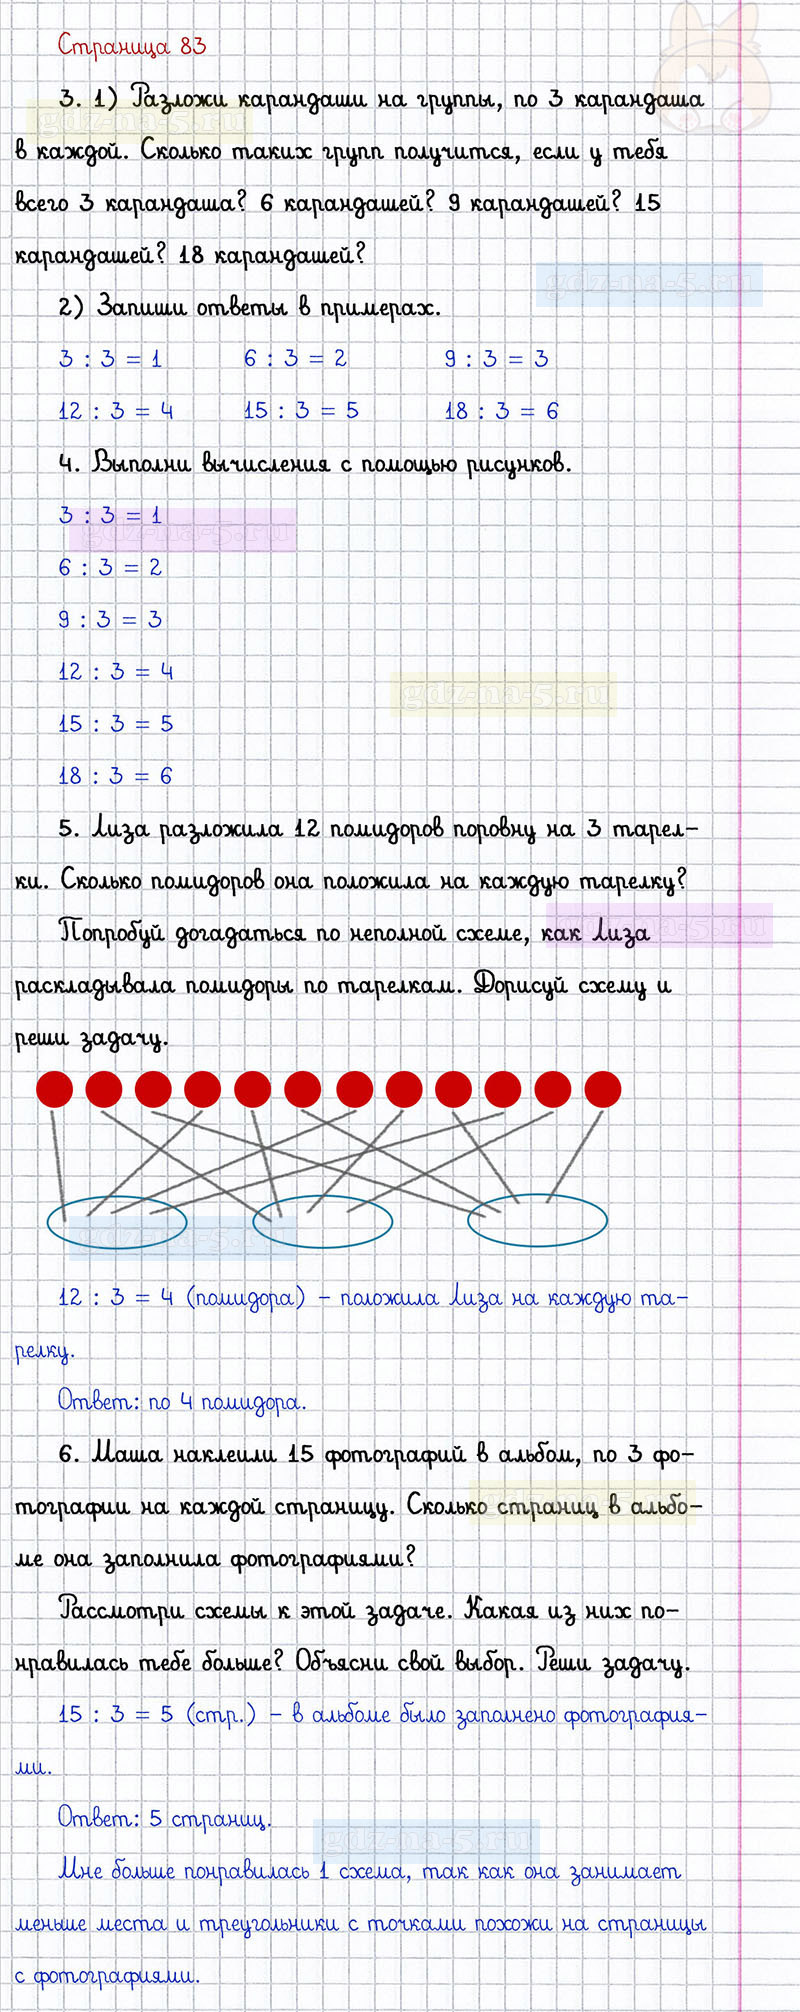 Страница 83
3. 1) Разложи карандаши на группы, по 3 карандаша
в каждой. Сколько таких групп получится, если у тебя
всего 3 карандаша? 6 карандашей? 9 карандашей? 15
карандашей? 18 карандашей?
gdz-na-5.ru
gdz-na-5.ru
2) Запиши ответы в примерах.
3 : 3 = 1 6 : 3 = 2 9 : 3 = 3
12 : 3 = 4 15 : 3 = 5 18 : 3 = 6
4. Выполни вычисления с помощью рисунков.
3 : 3 = 1
gdz-na-5.ru
6 : 3 = 2
9 : 3 = 3
12 : 3 = 4
gdz-na-5.ru
15 : 3 = 5
18 : 3 = 6
5. Лиза разложила 12 помидоров поровну на 3 тарел-
ки. Сколько помидоров она положила на каждую тарелку?
Попробуй догадаться по неполной схеме, как Лиза
gdz-na-5.ru
раскладывала помидоры по тарелкам. Дорисуй схему и
реши задачу.
gdz-na-5.ru
12 : 3 = 4 (помидора) – положила Лиза на каждую та-
релку.
Ответ: по 4 помидора.
6. Маша наклеили 15 фотографий в альбом, по 3 фо-
тографии на каждой страницу. Сколько страниц в альбо-
gdz-na-5.ru
ме она заполнила фотографиями?
Рассмотри схемы к этой задаче. Какая из них по-
нравилась тебе больше? Объясни свой выбор. Реши задачу.
15 : 3 = 5 (стр.) – в альбоме было заполнено фотография-
ми.
Ответ: 5 страниц.
gdz-na-5.ru
Мне больше понравилась 1 схема, так как она занимает
меньше места и треугольники с точками похожи на страницы
с фотографиями.